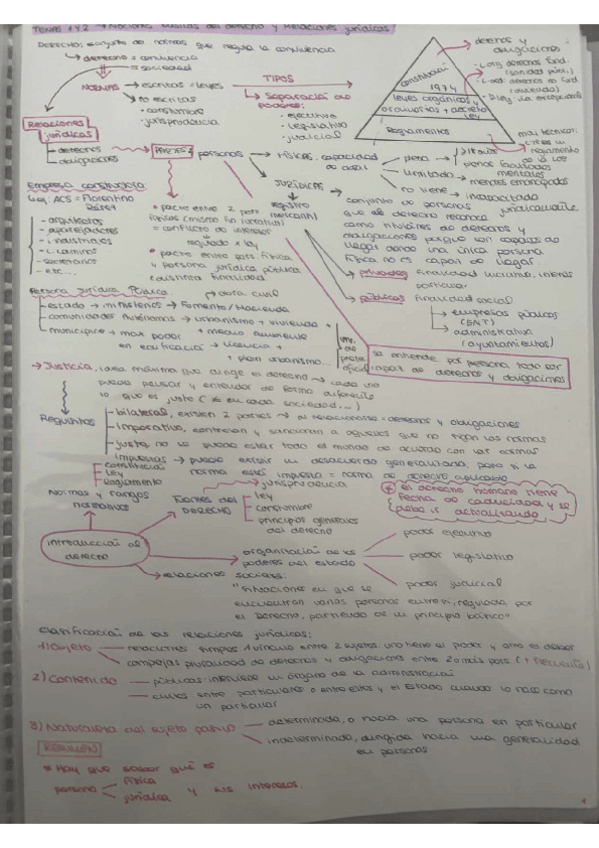 TEMAS 1 Y 2 → Nociones básicas del derecho y Relaciones jurídicas
DERECHO: conjunto de normas que regula la convivencia
↳ derecho = convivencia
= sociedad
NORMAS → escritas = leyes
↳ no escritas
• costumbre
• jurisprudencia
TIPOS
↳ Separación de poderes:
• ejecutivo
• legislativo
• judicial
constitución
leyes orgánicas y
ordinarias + decreto
ley
Reglamentos
derechos y
obligaciones
Relaciones
jurídicas
derechos
obligaciones
PARTES
personas
FÍSICAS: capacidad
de obrar
plena
limitada
no tiene → incapacitado
jurídicamente
JURÍDICAS
registro
mercantil
conjunto de personas
que el derecho reconoce
como titulares de derechos y
obligaciones porque son capaces de
llegar donde una única persona
física no es capaz de llegar.
privadas: finalidad lucrativa, interés
particular
públicas: finalidad social
empresas públicas
administrativa
(ayuntamientos)
Empresa constructora:
Ley: ACS = Florentino
Pérez
- arquitectos
- aparejadores
- industriales
- secretarios
- etc...
= conflicto de interés
regulado x ley
• pacto entre pers. física
y persona jurídica pública
Persona Jurídica Pública
obra civil
estado → ministerios → Fomento/Hacienda
comunidades Autónomas → urbanismo + vivienda +
+ medio ambiente
municipios → más poder
en edificación → licencia +
+ plan urbanismo...
se entiende por persona todo ser
capaz de derechos y obligaciones
→ Justicia, idea máxima que dirige el derecho → cada uno
puede pensar y entender de forma diferente
lo que es justo (≠ en cada sociedad...)
Requisitos
bilateral, existen 2 partes → al relacionarse = derechos y obligaciones
imperativo, controlan y sancionan a aquellos que no sigan las normas
justa, no se puede estar todo el mundo de acuerdo con las normas
impuestas → puede existir un desacuerdo generalizado, pero si la
norma está impuesta = norma de derecho aplicado
constitución
Ley
Reglamento
Normas y rangos
normativos
Fuentes del
DERECHO
jurisprudencia
ley
costumbre
principios generales
del derecho
el derecho humano tiene
fecha de caducidad y se
debe ir actualizando
introducción al
derecho
organización de los
poderes del estado
poder ejecutivo
poder legislativo
poder judicial
relaciones sociales:
"Situaciones en que se
encuentran varias personas entre sí, regulada por
el Derecho, partiendo de un principio básico"
Clasificación de las relaciones jurídicas:
1) Sujeto
relaciones simples 1 vínculo entre 2 sujetos: uno tiene el poder y otro el deber
complejas pluralidad de derechos y obligaciones entre 2 o más pers. (+ frecuente)
2) Contenido
públicas: interviene un órgano de la administración
civiles: entre particulares o entre estos y el Estado cuando lo hace como
un particular
3) Naturaleza del sujeto pasivo
determinada, o hacia una persona en particular
indeterminada, dirigida hacia una generalidad
en personas
RESUMEN
* Hay que saber qué es
persona
física
jurídica y sus intereses.